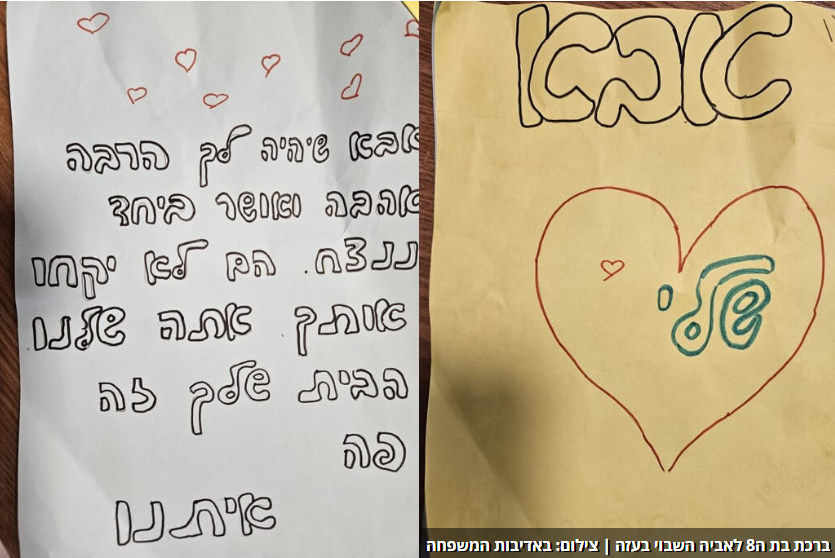 אבא
שלי
אבא שיהיה לך הרבה
אהבה ואושר ביחד
ננצח. הם לא יקחו
אותך אתה שלנו
הבית שלך זה
פה
איתנו
ברכת בת ה8 לאביה השבוי בעזה | צילום: באדיבות המשפחה